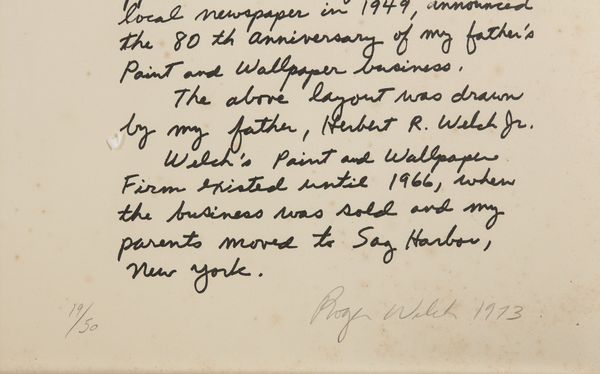 local newspaper in 1949, announced
the 80 th anniversary of my father's
Paint and Wallpaper business.
The above layout was drawn
by my father, Herbert R. Welch Jr.
Welch's Paint and Wallpaper
Firm existed until 1966, when
the business was sold and my
parents moved to Sag Harbor,
New York.
19/50
Roger Welch 1973